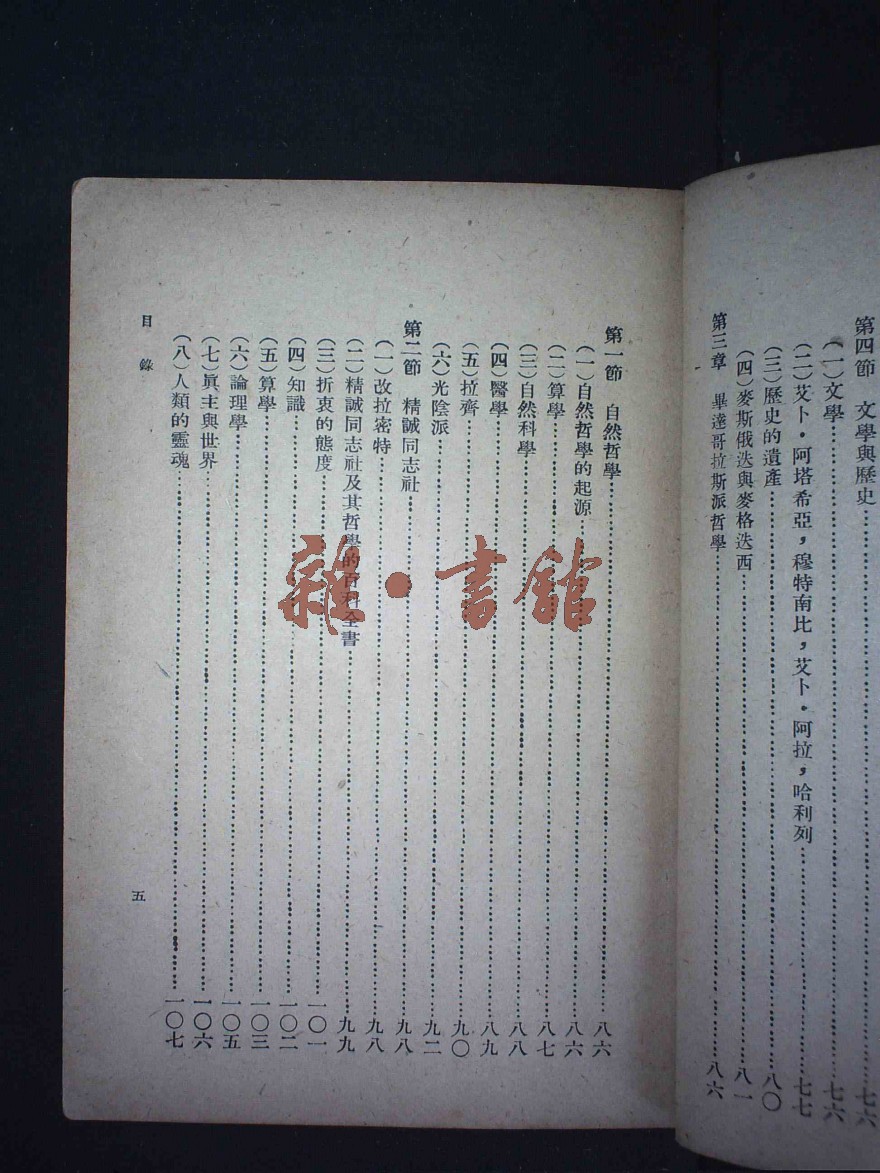 第四節　文學與歷史……七六
（一）文學……七六
（二）艾卜・阿塔希亞，穆特南比，艾卜・阿拉，哈利列……七七
（三）歷史的遺產……八〇
（四）麥斯俄迭與麥格迭西……八一
第三章　畢達哥拉斯派哲學……八六
第一節　自然哲學……八六
（一）自然哲學的起源……八六
（二）算學……八七
（三）自然科學……八八
（四）醫學……八九
（五）拉齊……九〇
（六）光陰派……九二
第二節　精誠同志社……九八
（一）改拉密特……九八
（二）精誠同志社及其哲學的百科全書……九九
（三）折衷的態度……一〇一
（四）知識……一〇二
（五）算學……一〇三
（六）論理學……一〇五
（七）眞主與世界……一〇六
（八）人類的靈魂……一〇七
目錄
五
雜・書館